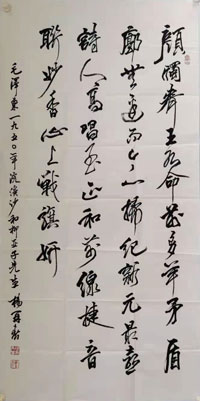 顏斶齊王各命前多年矛盾
廓無邊而今一掃紀新元最喜
詩人高唱至正和前線捷音
聯妙香山上戰旗妍
毛澤東一九五〇年浣溪沙和柳亞子先生 楊再春